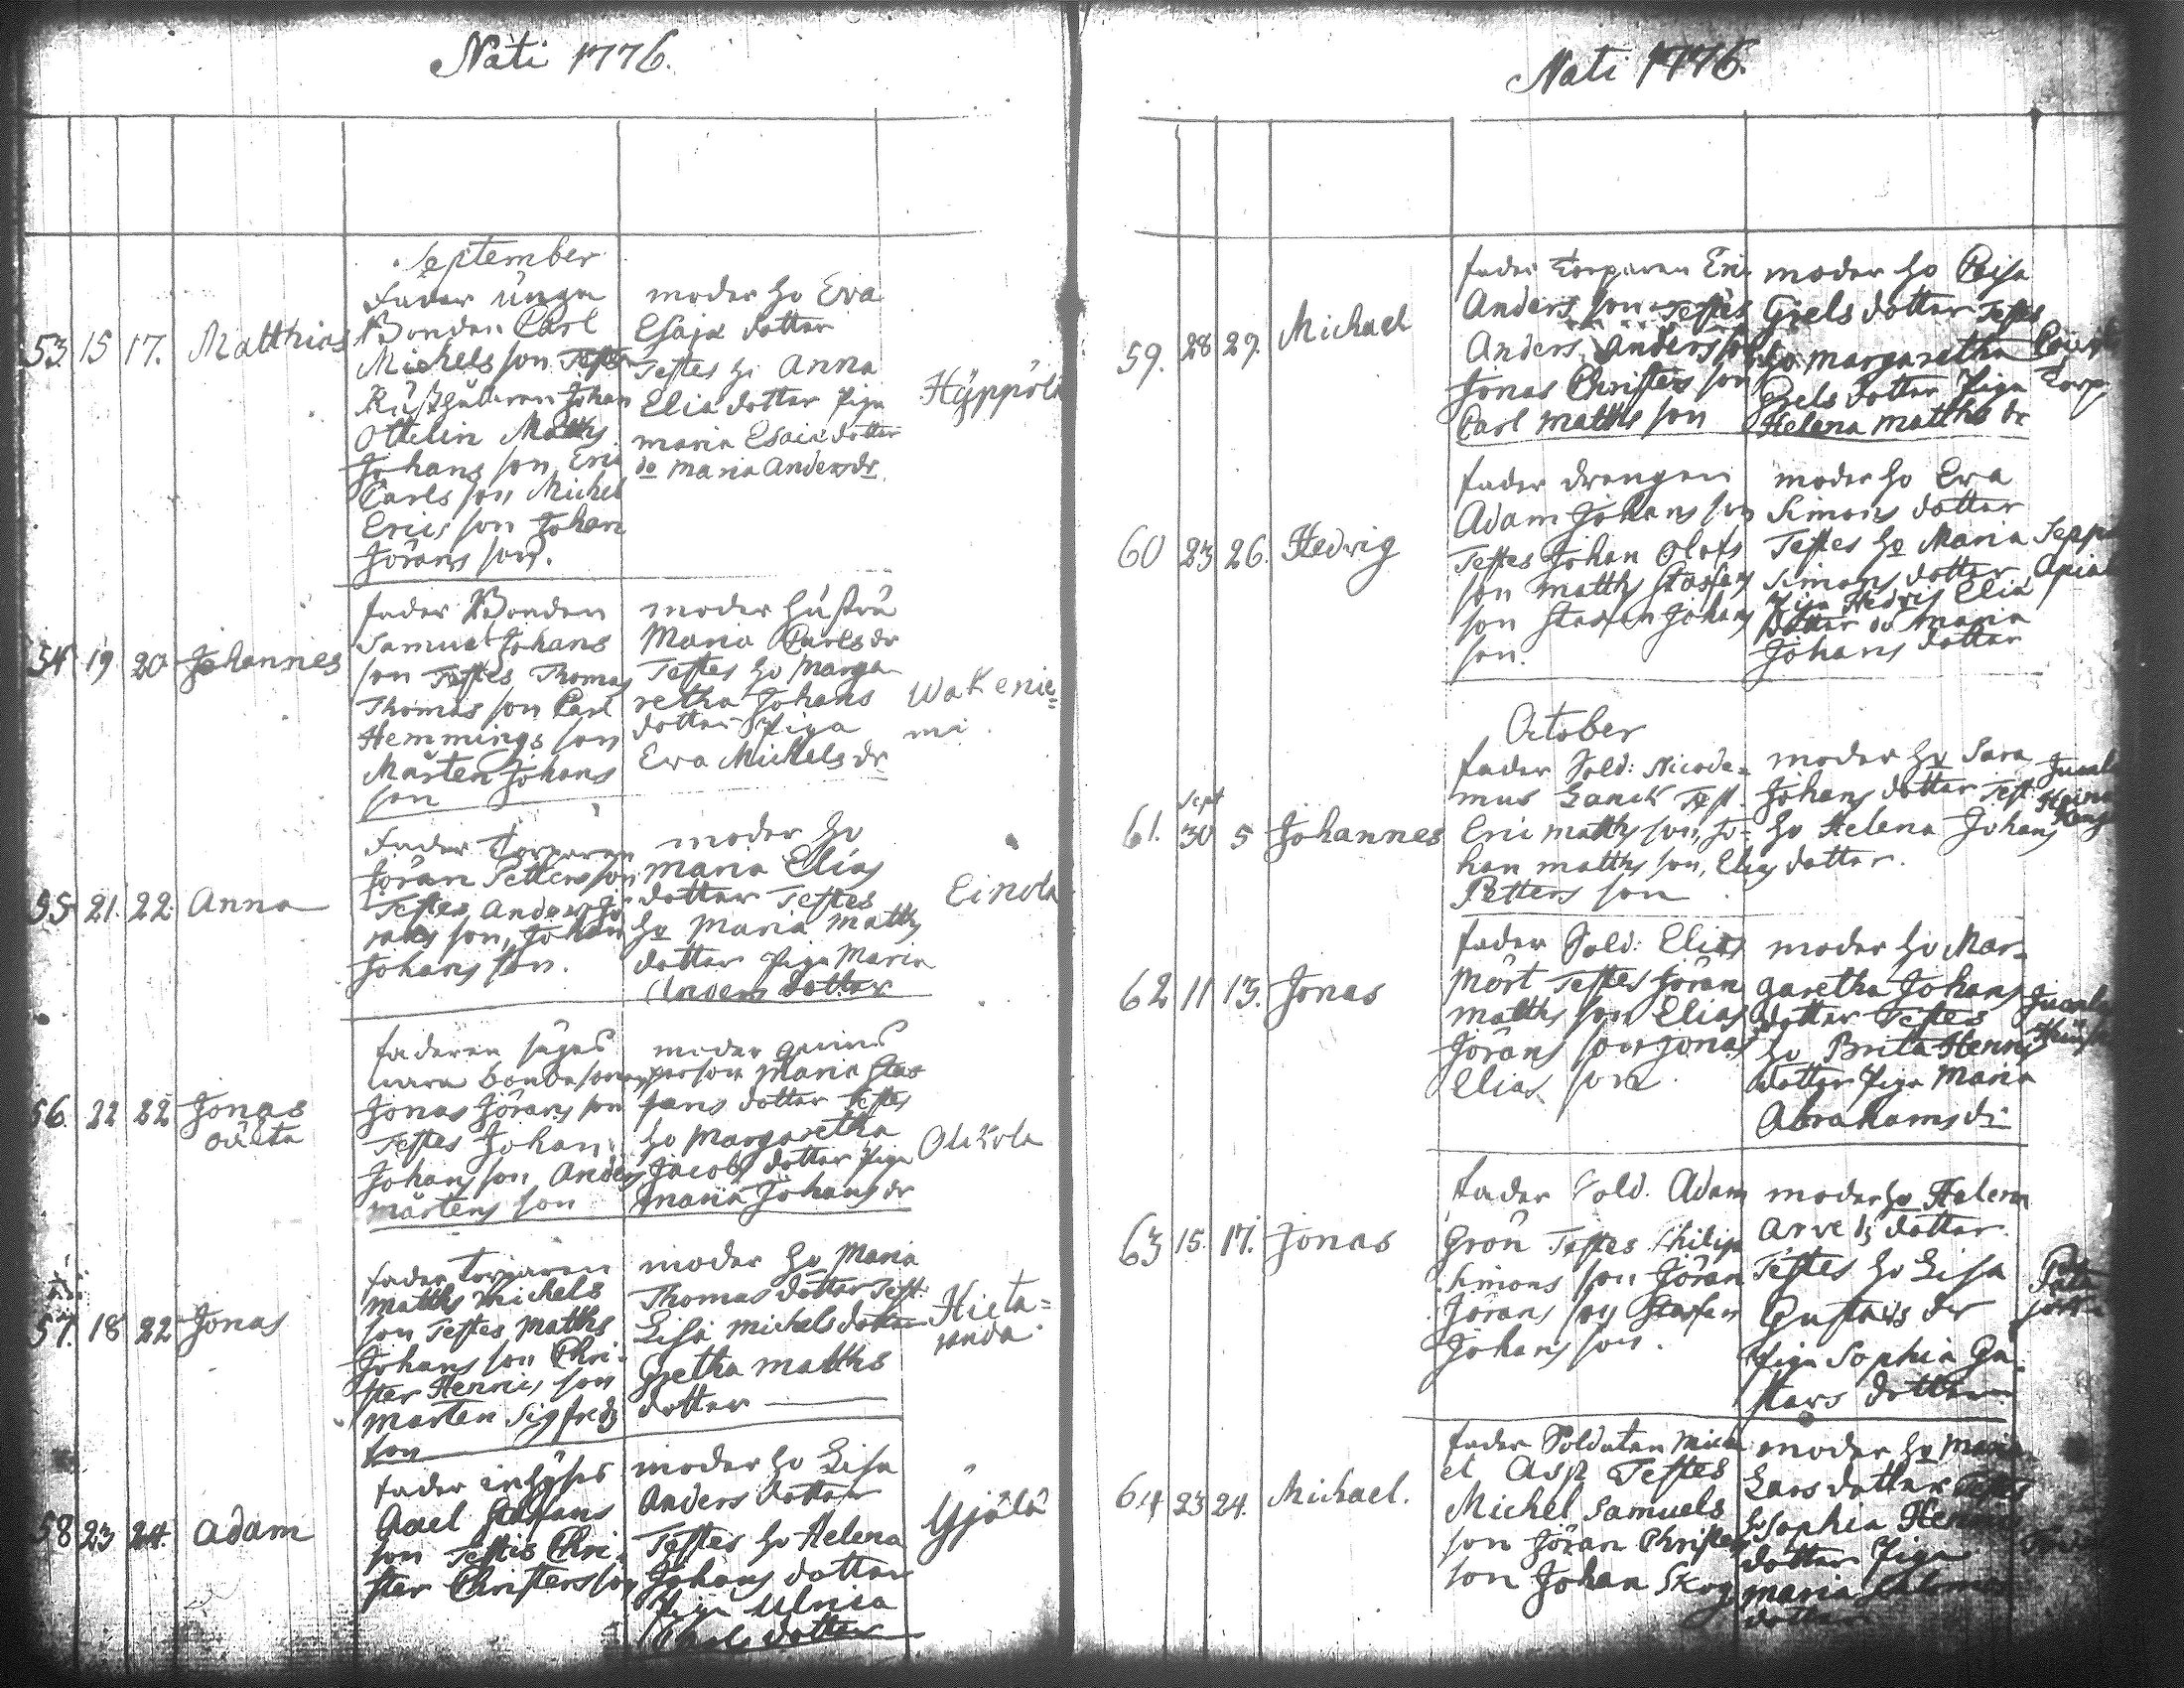 Nati 1776.
September
53 15 17. Matthias
Fader unga
Bonden Carl
Michels son Testes
Rusthållaren Johan
Ottelin Matths
Johans son, Eric
Carls son Michel
Erics son Johan
Jörans son.
moder ho Eva
Esajæ dotter
Testes ho Anna
Eliæ dotter Piga
maria Esaiæ dotter
do Maria Anders dr.
Hyppölä
54 19 20 Johannes
fader Bonden
Samuel Johans
son Testes Thomas
Thomas son Carl
Hemmings son
Mårten Johans
son
moder hustru
Maria Carls dr
Testes ho Marga
retha Johans
dotter Piga
Eva Michels dr
Wakenie=
mi
55 21. 22. Anna
Fader Torparen
Jöran Petters son
Testes, Anders Jö
rans son, Johan
Johans son.
moder ho
maria Elias
dotter Testes
ho Maria Matths
dotter Piga Maria
Anders dotter
Einola
56. 22 22 Jonas
oächta
faderen säges
vara bondesonen
Jonas Jörans son
Testes Johan
Johans son Anders
mårtens son
moder qvins
person Maria Staf
fans dotter Testes
ho Margaretha
Jacobs dotter Piga
maria Johans dr
Olikola
57. 18 22 Jonas
fader torparen
Matths Michels
son Testes Matths
Johans son Chri-
ster Henrics son
mårten Sigfreds
son
moder ho Maria
Thomas dotter Test.
Lisa Michels dotter
Gretha Matths
dotter
Hieta=
58 23 24. Adam
fader inhyses
Axel Staffans
son Testis Chri-
ster Christers son
moder ho Lisa
Anders dotter
Testes ho Helena
Johans dotter
Piga Ulrica
Carls dotter
Gjälä
Nati 1776.
59. 28 29. Michael
fader Torparen Eric
Anders son Testes
Anders Anders son
Jonas Christers son
Carl Matths son
moder ho Caisa
Griels dotter Testes
ho margaretha
Griels dotter Piga
Helena Matths dr
Torp
60 23 26. Hedvig
fader drengen
Adam Johans son
Testes Johan Olofs
son Matths Staffans
son Staffan Johans
son.
moder ho Eva
Simons dotter
Testes ho Maria
Simons dotter
Piga Hedvig Eliæ
dotter do Maria
Johans dotter
October
61. Sept 30 5 Johannes
fader Sold: Nicode=
mus Lanck Test.
Eric Matths son, Jo-
han Matths son, Elias
Petters son
moder ho Sara
Johans dotter Test:
ho Helena Johans
dotter.
62 11 13. Jonas
fader Sold: Elias
Mört Testes Jöran
Matths son Elias
Jörans son Jonas
Elias son
moder ho Mar=
garetha Johans
dotter Testes
ho Brita Henrics
dotter Piga Maria
Abrahams dr
63 15. 17. Jonas
fader Sold. Adam
Grön Testes Philip
Simons son Jöran
Jörans son Staffan
Johans son.
moder ho Helena
Arveds dotter.
Testes ho Lisa
Gustavs dr
Piga Sophia Gu-
stavs dotter
64 23 24. Michael.
fader Soldaten Mica
el Asp Testes
Michel Samuels
son Jöran Christers
son Johan Skog
moder ho Maria
Lars dotter Testes
ho Sophia Henrics
dotter Piga
maria
dotter